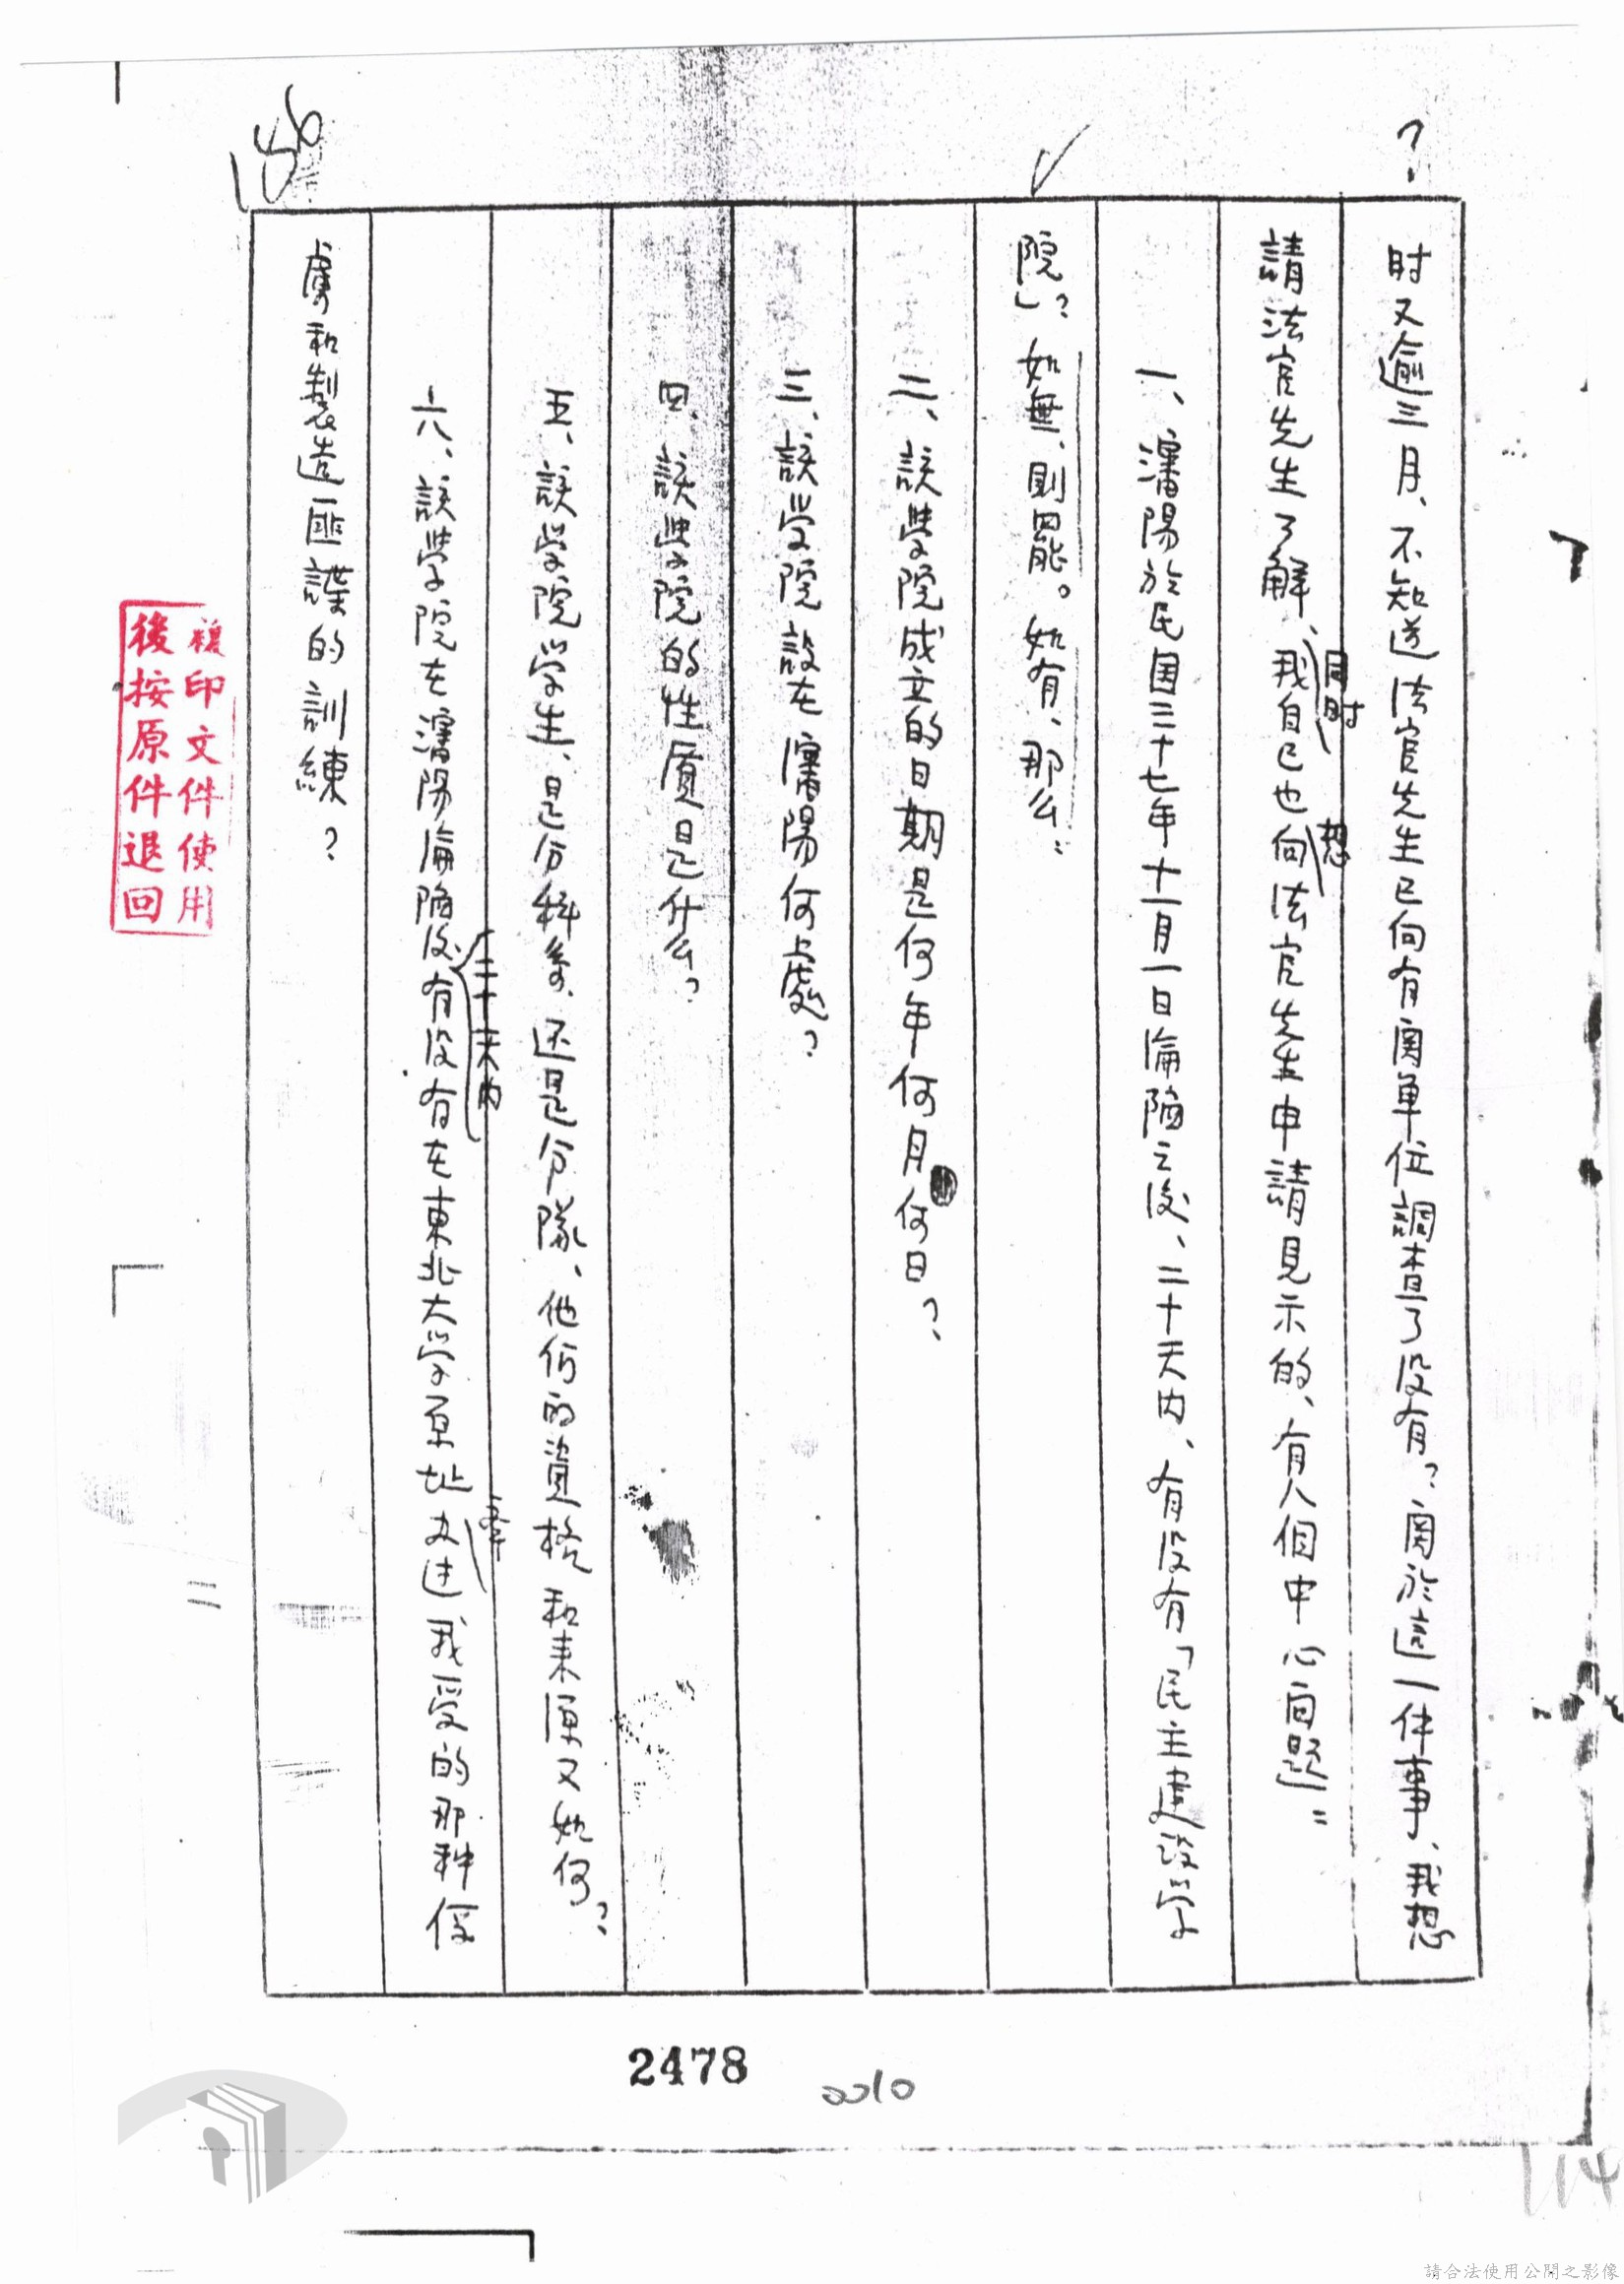 ?
时又逾三月、不知道法官先生已向有関单位調查了没有？関於這一件事、我想
請法官先生了解、同时我自己也想向法官先生申請見示的、有八個中心问題：
✓
一、瀋陽於民国三十七年十一月一日淪陷之後、二十天内、有没有「民主建設学
院」？如無、則罷。如有、那么：
二、該學院成立的日期是何年何月何日？
三、該学院設在瀋陽何處？
四、該學院的性质是什么？
五、該学院学生、是分科系、还是分隊、他们的資格和来源又如何？
六、該學院在瀋陽淪陷后二十天内有没有在東北大学原址办过我受的那种俘
虜和製造匪諜的訓練？
複印文件使用
後按原件退回
2478
0010
114
請合法使用公開之影像